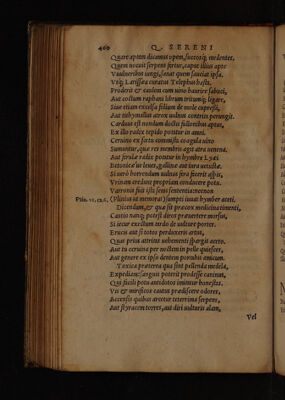 460 Q. SERENI
Quare aptam dicamus opem, succosq; medentes.
Quem nocuit serpens fertur, caput illius apte
Vulneribus iungi, sanat quem sauciat ipsa.
Vtq; Larissæa curatus Telephus hasta.
Proderit & caulem cum vino haurire sabuci,
Aut coctum raphani librum tritumq; ligare,
Siue etiam excelsa folium de mole cupressi,
Aut tithymallus atrox uulnus contritus perungit.
Carduus est nondum doctis fullonibus aptus,
Ex illo radix tepido potatur in amni.
Ceruino ex foetu commixta coagula uino
Sumuntur, quæ res membris agit atra uenena.
Aut ferulæ radix potatur in hymbre Lyæi
Betonicæ ut leuet, gallinæ aut iura uetustæ.
Si uero horrendum uulnus fera fecerit aspis,
Vrinam credunt propriam conducere potu.
Varronis fuit ista senis sententia: necnon
Plin. sumpti iuuat hymber aceti.
Dicendum, & quæ sit præcox medicina timenti,
Cautio namq; potest diros prauertere morsus,
Si iecur exectum cardo de uulture portet.
Erucis aut si totos perduxeris artus,
Quas prius attritas uehementi spargis aceto.
Aut tu ceruina per noctem in pelle quiescet,
Aut genere ex ipso dentem portabis amicum.
Toxica præterea qua sint pellenda medela,
Expediam: sanguis poterit prodesse caninus,
Quis siculi potu antidotos imitatur honestas.
Vti & mirificos cautus prædiscere odores,
Accensis quibus arcetur teterrima serpens,
Aut styracem torres, aut diri uulturis alam,
Vel